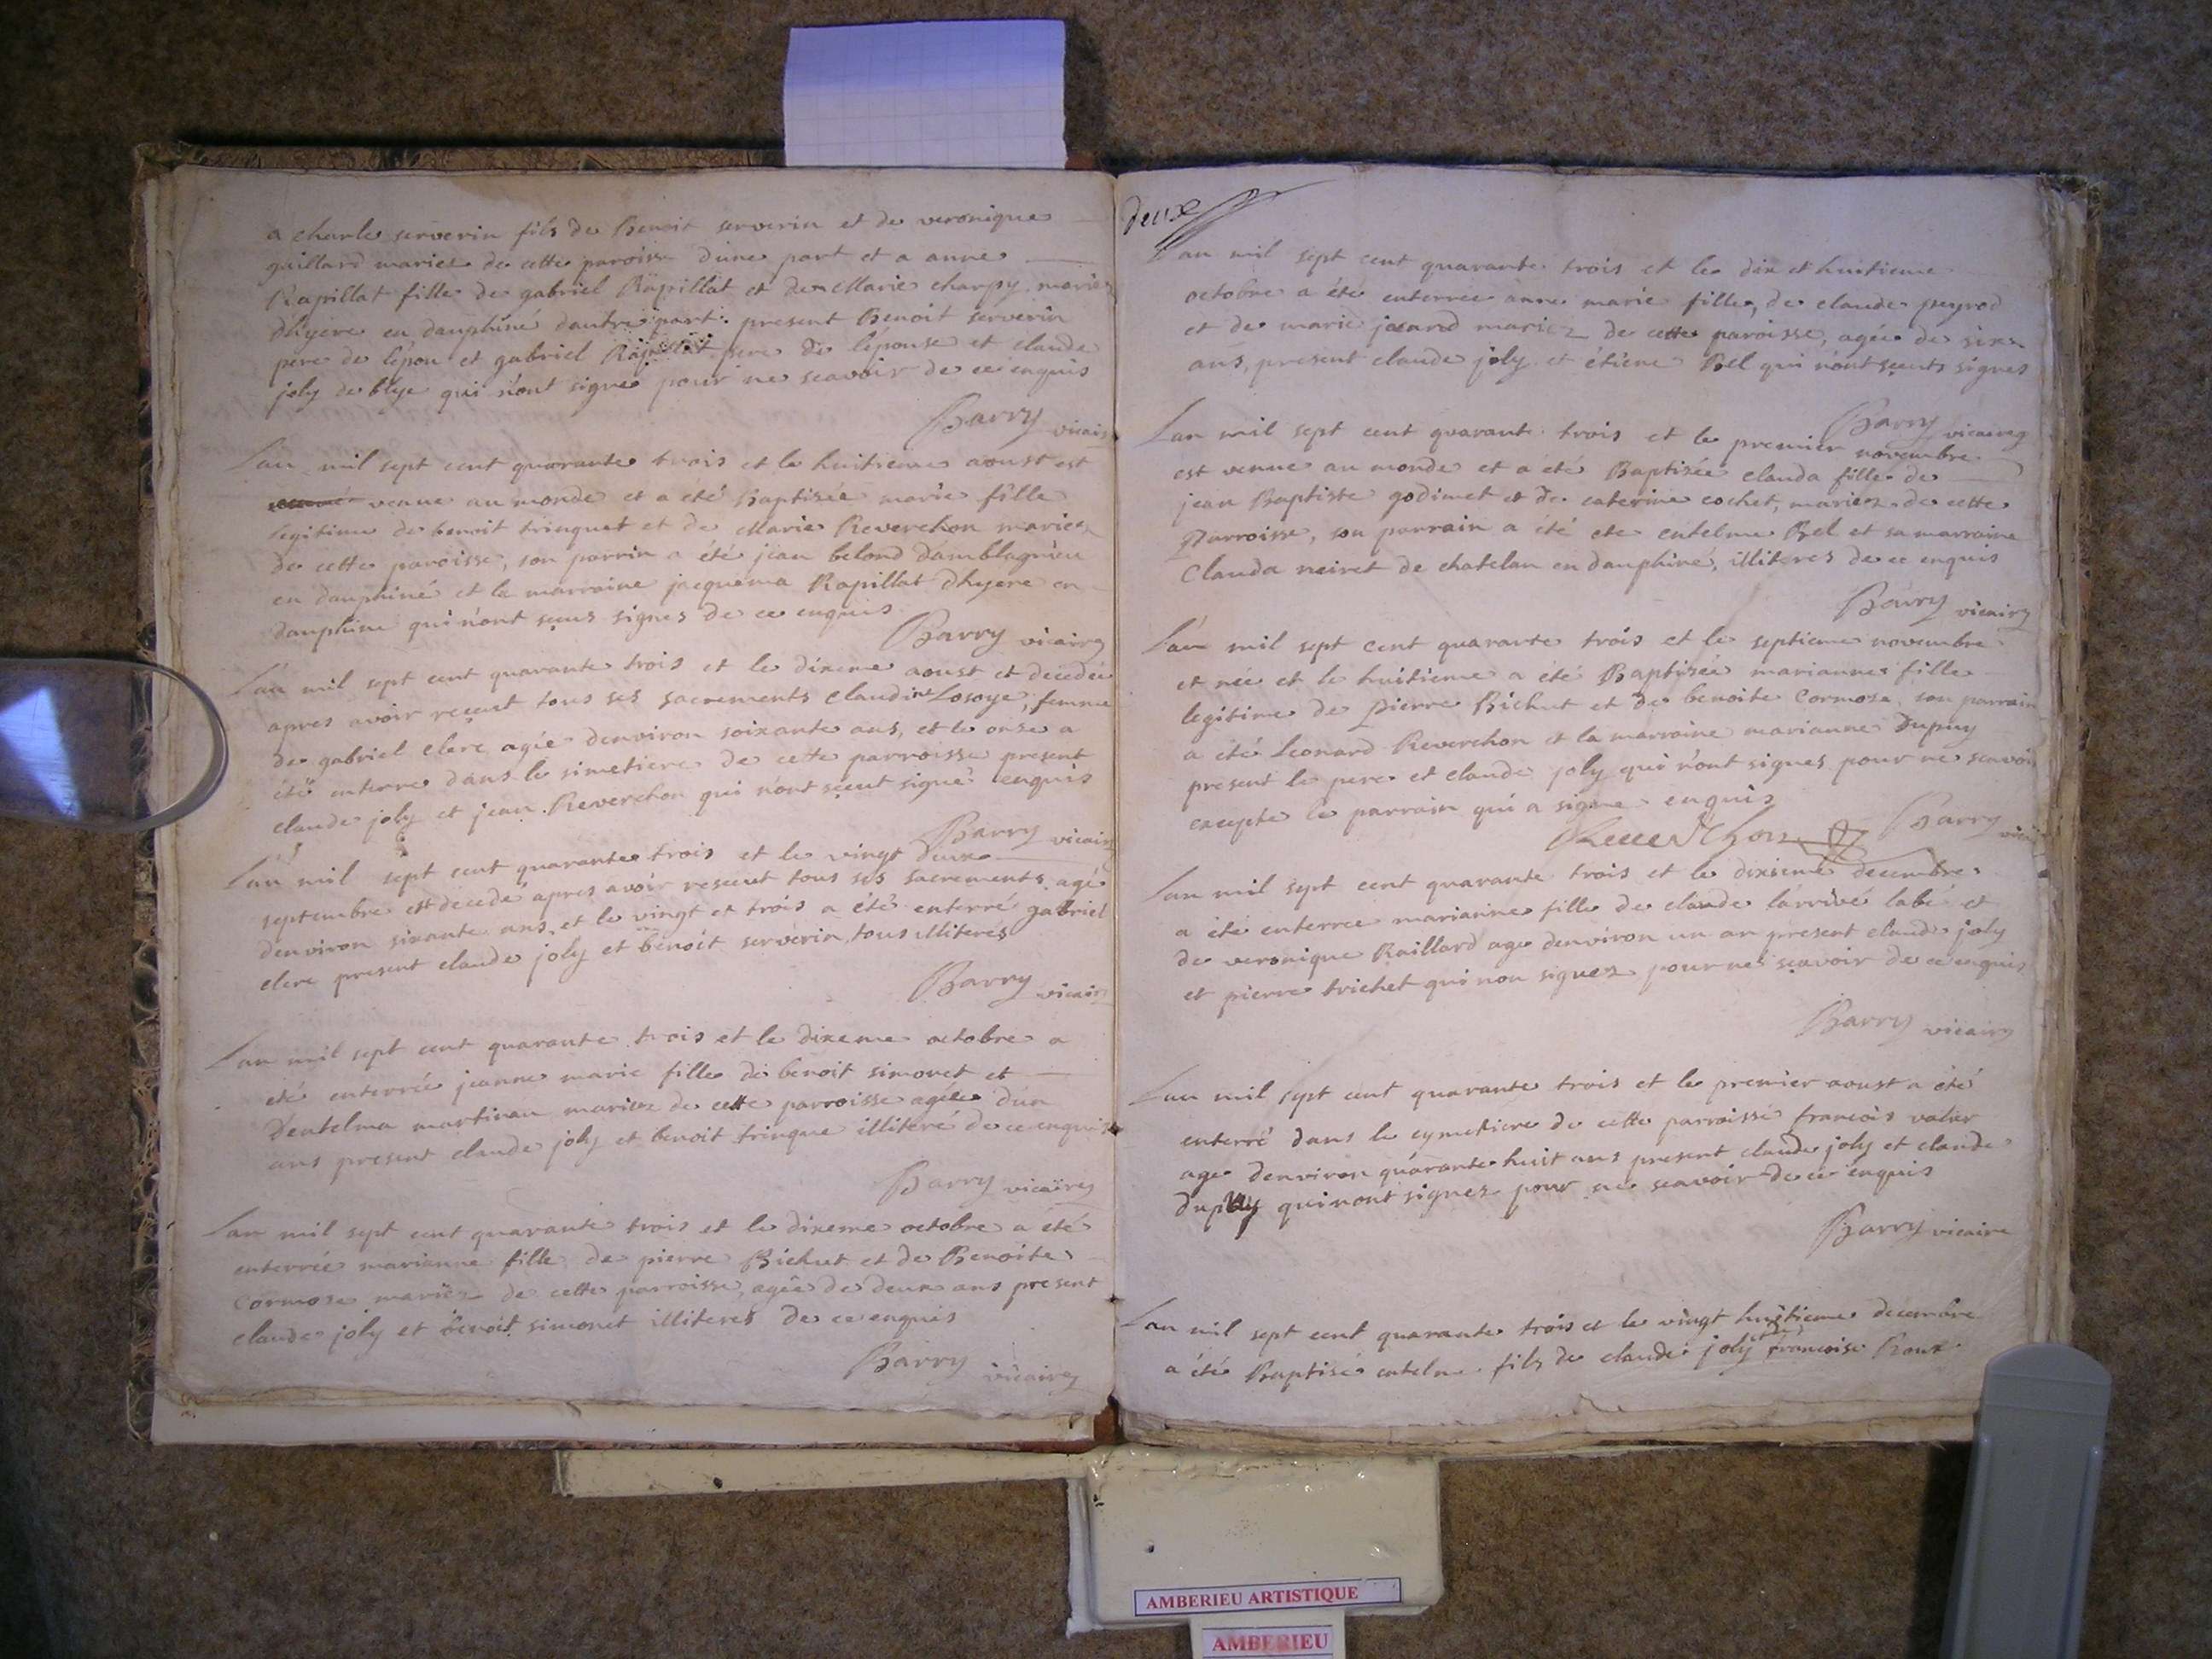 a charle serverin fils de Benoit serverin et de veronique
gaillard mariez de cette paroisse dune part et a anne
Rapillat fille de gabriel Rapillat et de Marie charpy mariez
dhyere en dauphiné dautre part. present Benoit serverin
pere de lépou et gabriel Rapillat pere de lépouse et claude
joly de blye qui n'ont signé pour ne scavoir de ce enquis
Barry vicair
L'an mil sept cent quarante trois et le huitieme aoust est
venue au monde et a été Baptisée marie fille
legitime de benoit trinquet et de Marie Reverchon mariez
de cette paroisse, son parrin a été jean belond damblagnieu
en dauphiné et la marraine jacquema Rapillat dhyere en
dauphine qui n'ont sceus signes de ce enquis
Barry vicaire
L'an mil sept cent quarante trois et le dixeme aoust et decedée
apres avoir receut tous ses sacrements claudine Losoye, femme
de gabriel clerc agée denviron soixante ans, et le onze a
été enterre dans le simetiere de cette parroisse present
claude joly et jean Reverchon qui n'ont sceut signé enquis
Barry vicair
L'an mil sept cent quarante trois et le vingt deux
septembre est decedé apres avoir resceut tous ses sacrements agé
denviron sixante ans, et le vingt et trois a été enterré gabriel
clerc present claude joly et benoit serverin tous illiteres
Barry vicair
Lan mil sept cent quarante trois et le dixeme octobre a
été enterrée jeanne marie fille de benoit simonet et
Dentelma martinan mariez de cette parroisse agée dun
ans present claude joly et benoit trinque illiteré de ce enquis
Barry vicaire
Lan mil sept cent quarante trois et le dixeme octobre a été
enterrée marianne fille de pierre Bichut et de Benoite
Cormoze mariez de cette parroisse, agée de deux ans present
claude joly et benoit simonet illiteres de ce enquis
Barry vicaire
deuxe
Lan mil sept cent quarante trois et le dix et huitieme
octobre a été enterrée anne marie fille, de claude peyrod
et de marie mariez de cette paroisse, agée de six
ans, present claude joly et étiene Bel qui n'ont sceuts signes
Barry vicaire
Lan mil sept cent quarante trois et le premier novembre
est venue au monde et a été Baptisée clauda fille de
jean Baptiste godimet et de caterine cochet, mariez de cette
Parroisse, son parrain a été ete entelme Bel et sa marraine
Clauda neiret de chatelan en dauphiné, illiteres de ce enquis
Barry vicaire
L'an mil sept cent quarante trois et le septieme novembre
et née et le huitieme a été Baptisée marianne fille
legitime de Pierre Bichut et de benoite Cormoze, son parrain
a été Leonard Reverchon et la marraine marianne Dupuy
present le pere et claude joly qui n'ont signes pour ne scavoir
excepte le parrain qui a signe enquis
Reverchon Barry vicair
Lan mil sept cent quarante trois et le dixieme decembre
a été enterree marianne fille de claude larrivé labé et
de veronique Raillard age denviron un an present claude joly
et pierre trichet qui non signez pour ne scavoir de ce enquis
Barry vicaire
Lan mil sept cent quarante trois et le premier aoust a été
enterré dans le cymetiere de cette parroisse francois valier
age denviron quarante huit ans present claude joly et claude
dupuy qui n'ont signez pour ne scavoir de ce enquis
Barry vicaire
Lan mil sept cent quarante trois et le vingt huitieme decembre
a été Baptisé entelme fils de claude joly et de francoise Roux
AMBERIEU ARTISTIQUE
AMBERIEU